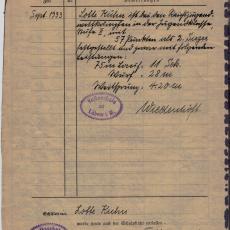 Sept 1933
Lotte Kühn ist bei den Reichsjugend-
wettkämpfen in der Jugendklasse,
Stufe II, mit
57 Punkten als 2. Sieger
festgestellt und zwar mit folgenden
Leistungen:
75 m Lauf: 11 Sek.
Wurf: 28 m
Weitsprung: 4.20 m
Lotte Kuhn
wurde heute aus der Schulpflicht entlassen.